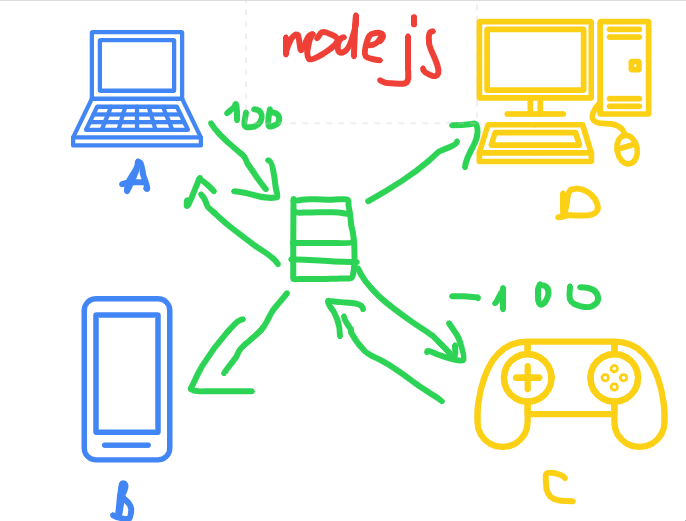 node js
100
A
D
-100
B
C